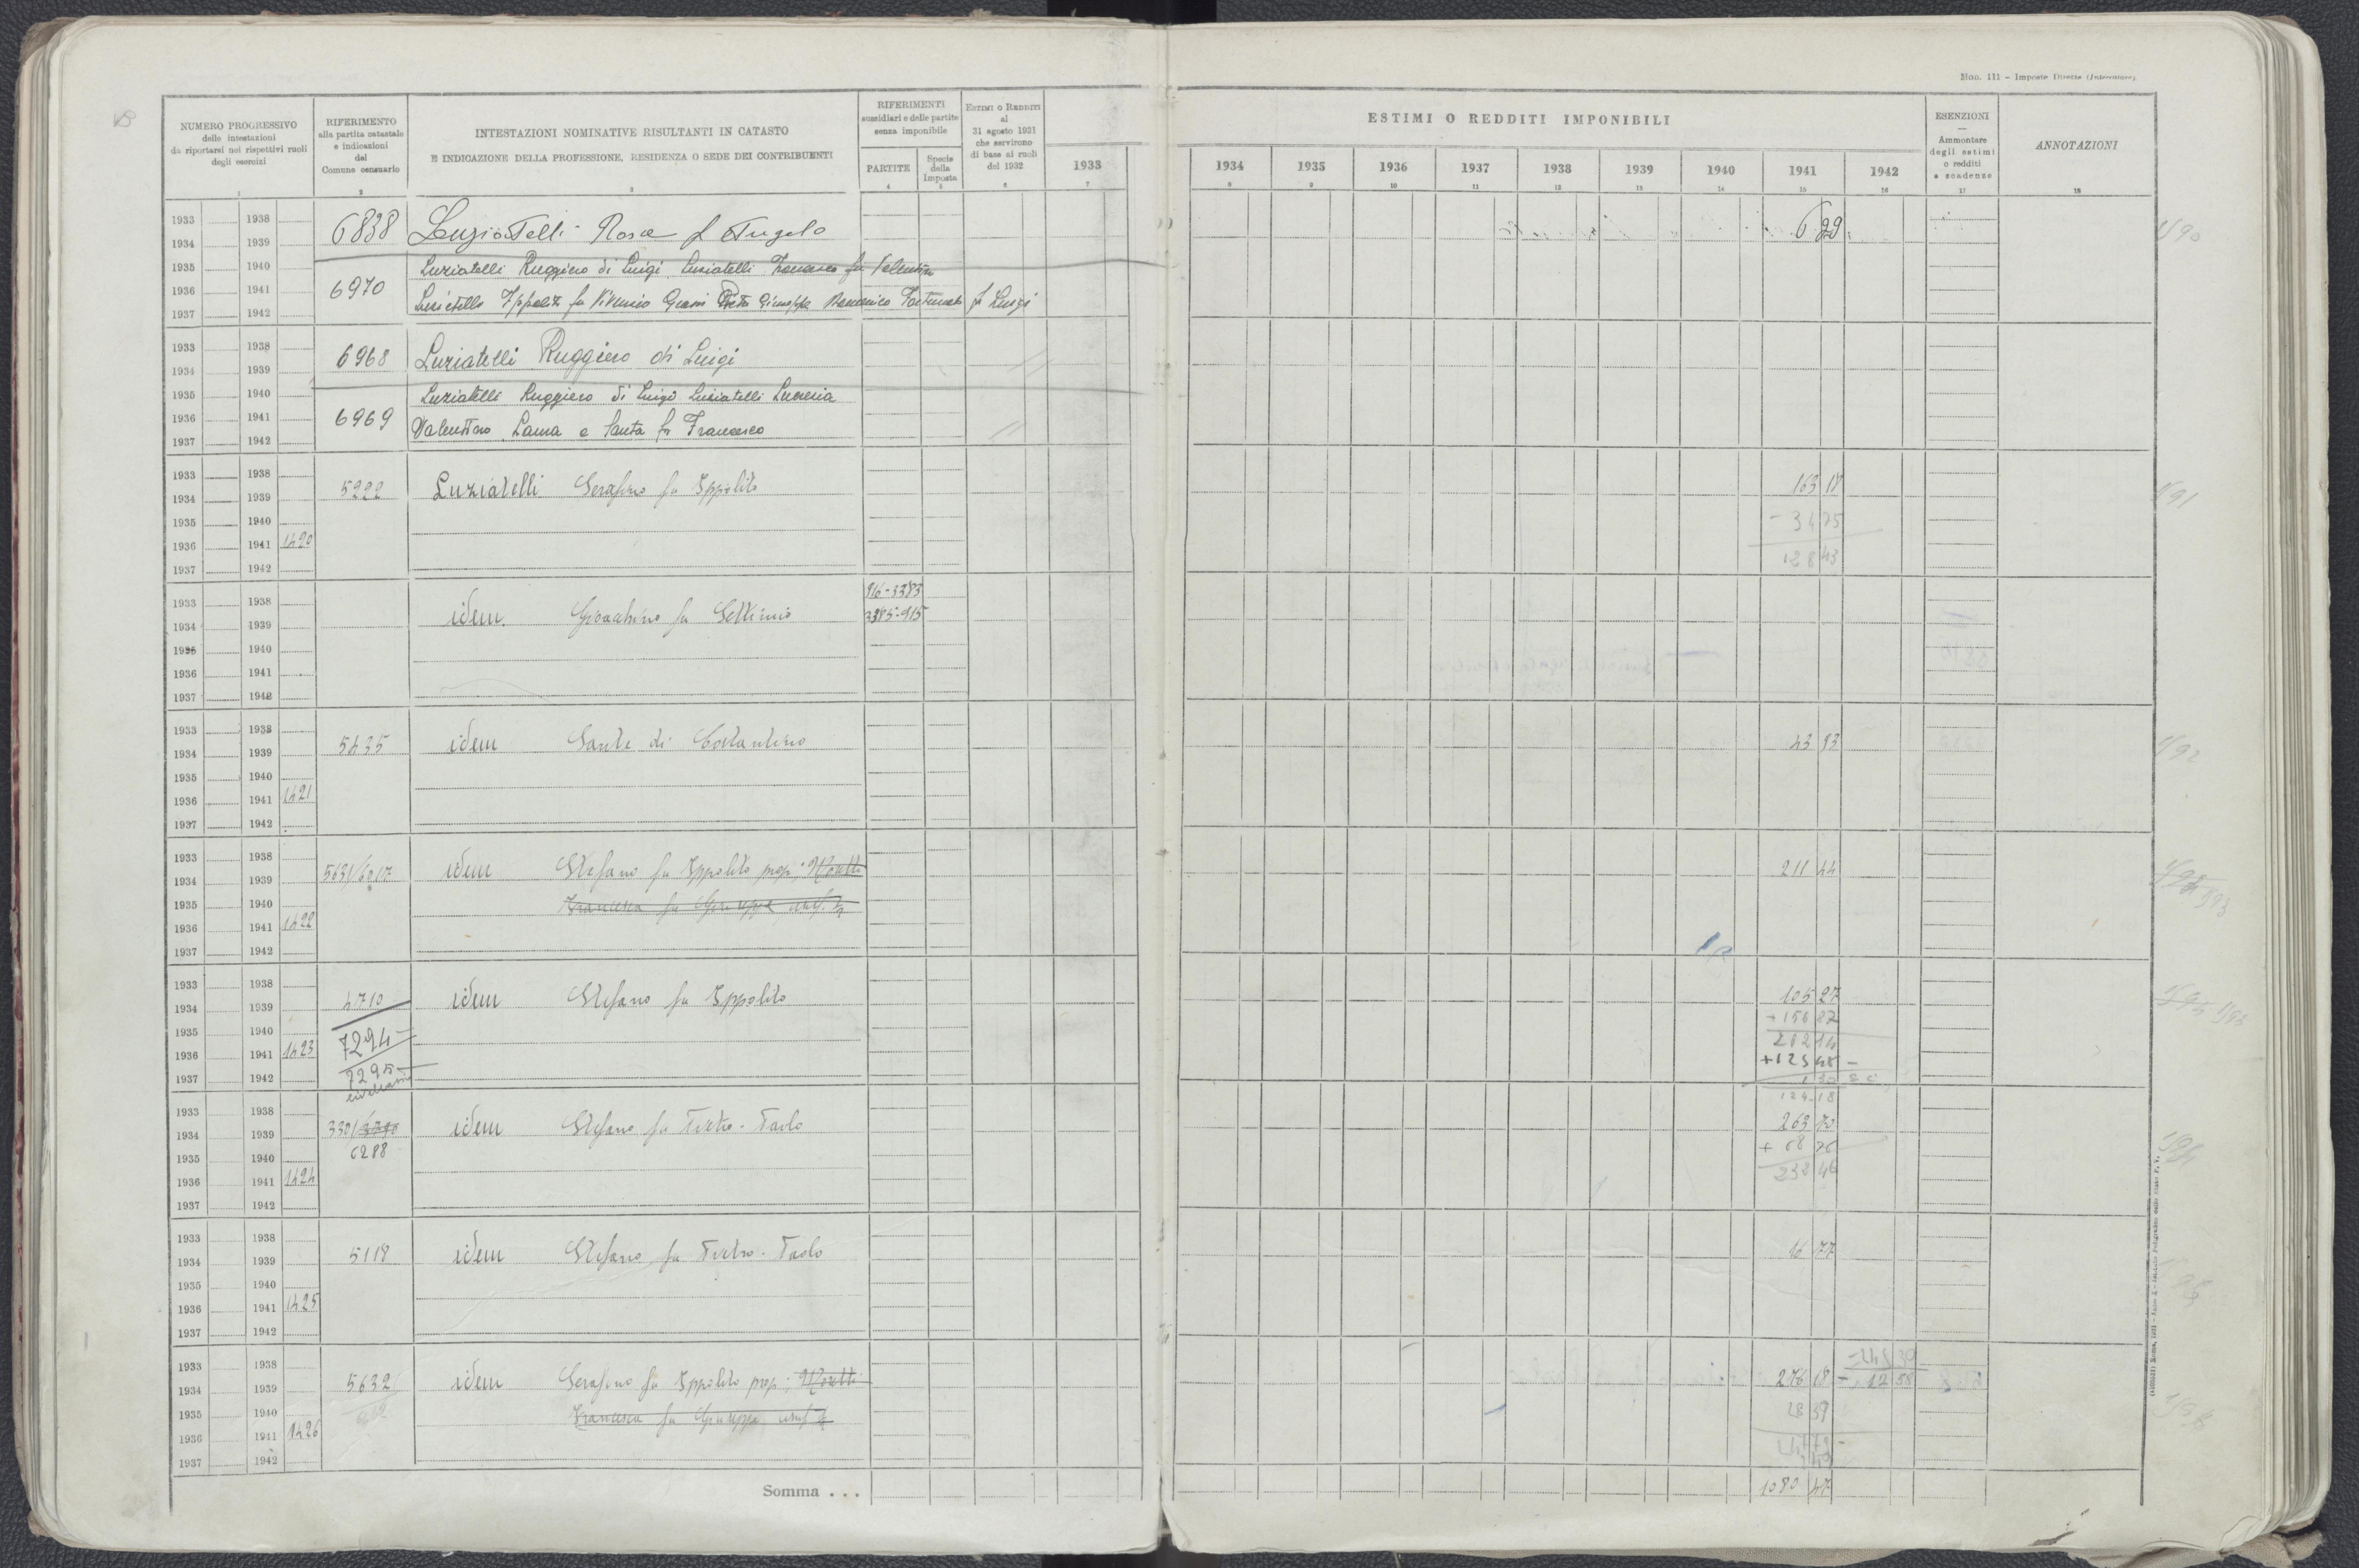 Mod. 111 – Imposte Dirette (Intercalare)
NUMERO PROGRESSIVO
delle intestazioni
da riportarsi nei rispettivi ruoli
degli esercizi
1
RIFERIMENTO
alla partita catastale
e indicazioni
del
Comune censuario
2
INTESTAZIONI NOMINATIVE RISULTANTI IN CATASTO
E INDICAZIONE DELLA PROFESSIONE, RESIDENZA O SEDE DEI CONTRIBUENTI
3
RIFERIMENTI
sussidiari e delle partite
senza imponibile
PARTITE
4
Specie
della
Imposta
5
Estimi o Redditi
al
31 agosto 1931
che servirono
di base ai ruoli
del 1932
6
ESTIMI O REDDITI IMPONIBILI
1933 1934 1935 1936 1937 1938 1939 1940 1941 1942
7 8 9 10 11 12 13 14 15 16
ESENZIONI
—
Ammontare
degli estimi
o redditi
e scadenze
17
ANNOTAZIONI
18
1933 1938
1934 1939
1935 1940
1936 1941
1937 1942
6838 Luziatelli Rosa f Angelo 6 29
6970 Luziatelli Ruggiero di Luigi Luziatelli Francesco fu Valentino
Luziatelli Ippolito fu Vincenzo Grassi Pietro Giuseppe Domenico Fortunato fu Luigi
1933 1938
1934 1939
1935 1940
1936 1941
1937 1942
6968 Luziatelli Ruggiero di Luigi
6969 Luziatelli Ruggiero di Luigi Luziatelli Lucrezia
Valentino Laura e Santa fu Francesco
1933 1938
1934 1939
1935 1940
1936 1941 1420
1937 1942
5222 Luziatelli Serafino fu Ippolito 163 18
- 34 75
128 43
1933 1938
1934 1939
1935 1940
1936 1941
1937 1942
916-3383
idem Gioacchino fu Settimio 3385-915
1933 1938
1934 1939
1935 1940
1936 1941 1421
1937 1942
5435 idem Sante di Costantino 43 83
1933 1938
1934 1939
1935 1940
1936 1941 1422
1937 1942
5631/6017 idem Stefano fu Ippolito prop; Moretti 211 44
Francesca fu Giuseppe usuf.
1933 1938
1934 1939
1935 1940
1936 1941 1423
1937 1942
4710 idem Stefano fu Ippolito 105 27
7294
7295
1933 1938
1934 1939
1935 1940
1936 1941 1424
1937 1942
idem Stefano fu Pietro-Paolo 263 70
6288
1933 1938
1934 1939
1935 1940
1936 1941 1425
1937 1942
5118 idem Stefano fu Pietro-Paolo 16 77
1933 1938
1934 1939
1935 1940
1936 1941 1426
1937 1942
5632 idem Serafino fu Ippolito prop; Moretti 276 18
Francesca fu Giuseppe usuf.
28 39
Somma . . . 1080 47